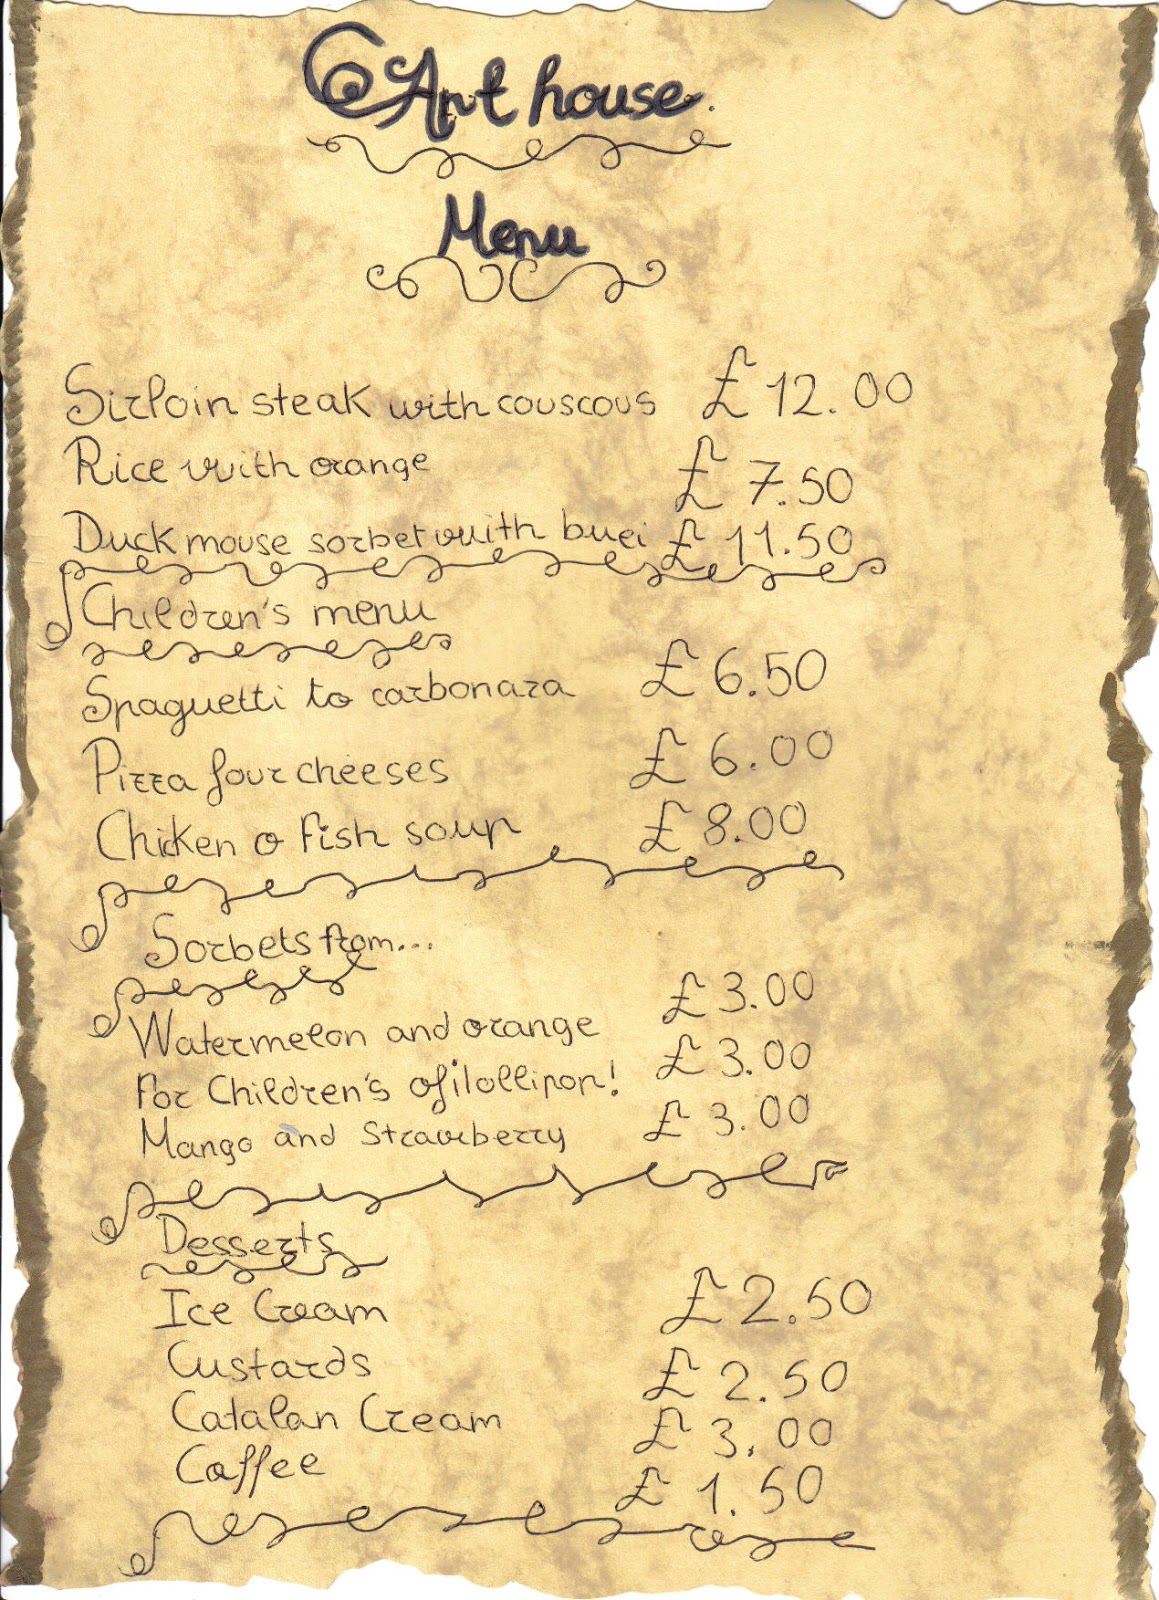 Art house.
Menu
Sirloin steak with couscous £ 12.00
Rice with orange £ 7.50
Duck mouse sorbet with buei £ 11.50
Children's menu
Spaguetti to carbonara £ 6.50
Pizza four cheeses £ 6.00
Chicken o fish soup £ 8.00
Sorbets from...
Watermelon and orange £ 3.00
For Children's of lollipop! £ 3.00
Mango and Strawberry £ 3.00
Desserts
Ice Cream £ 2.50
Custards £ 2.50
Catalan Cream £ 3.00
Coffee £ 1.50